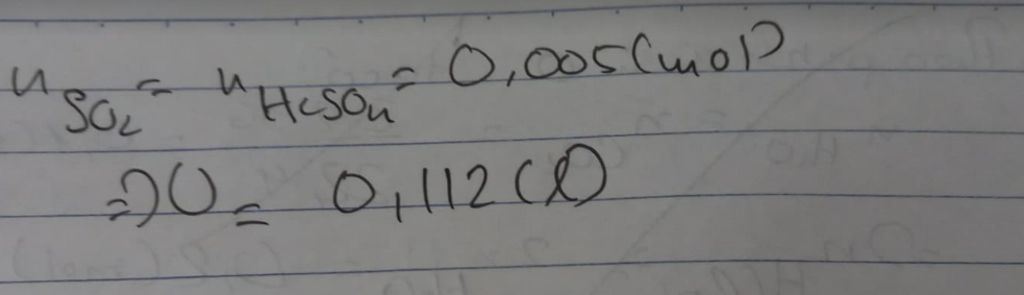 n SO₂ = n H₂SO₄ = 0,005 (mol)
=> V = 0,112 (l)